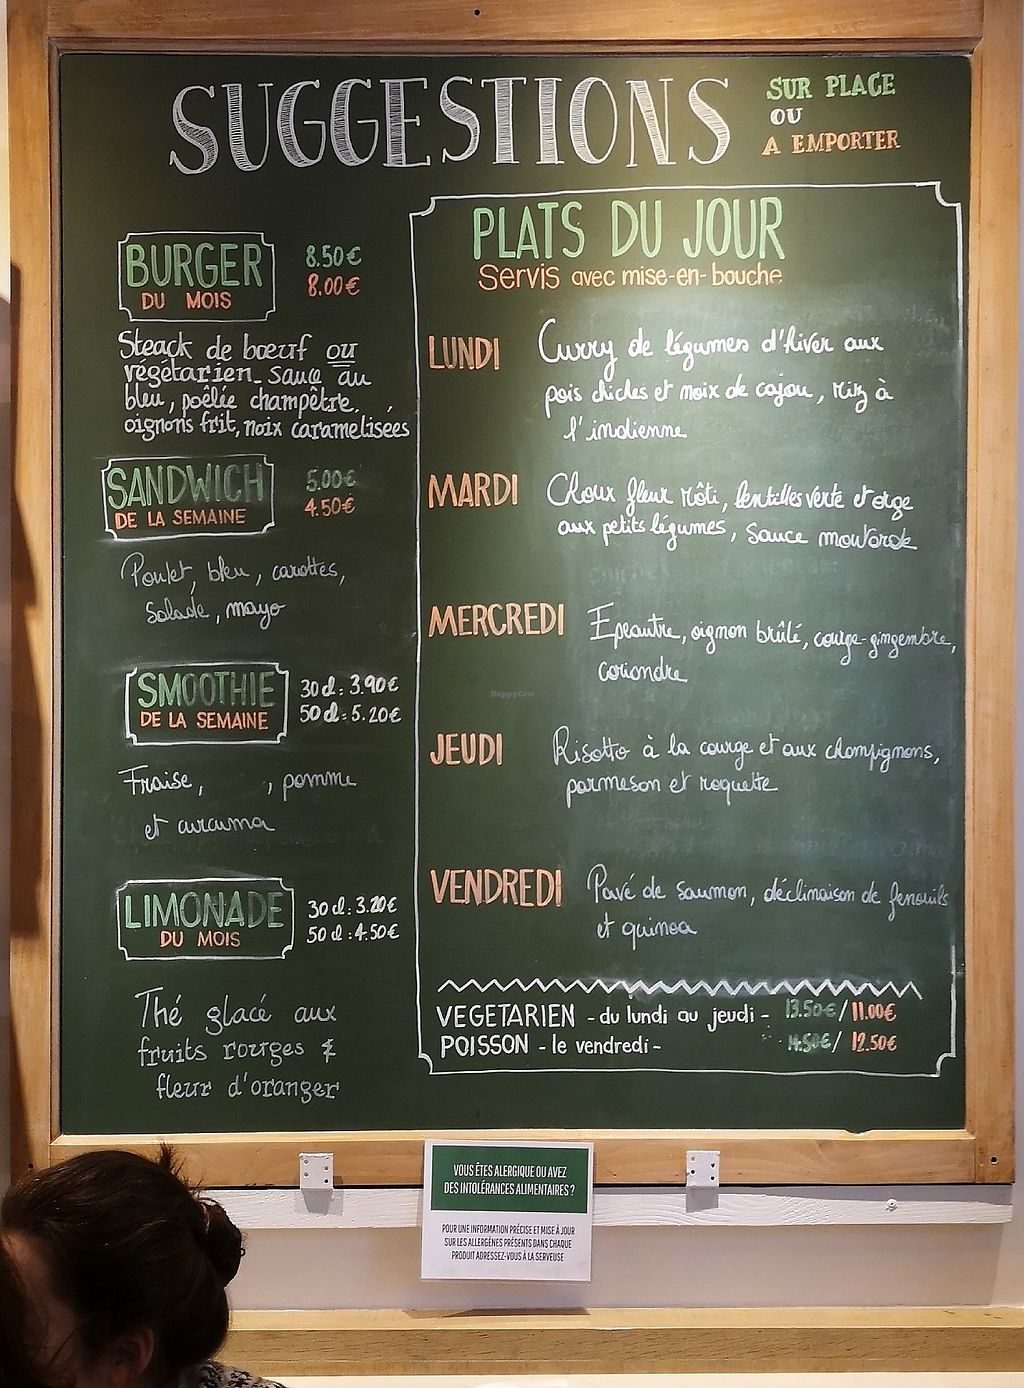 SUGGESTIONS
SUR PLACE
OU
A EMPORTER
BURGER
DU MOIS
8.50€
8.00€
Steack de bœuf ou
végétarien_ sauce au
bleu, poêlée champêtre,
oignons frit, noix caramelisées
SANDWICH
DE LA SEMAINE
5.00€
4.50€
Poulet, bleu, carottes,
salade, mayo
SMOOTHIE
DE LA SEMAINE
30 cl : 3.90€
50 cl : 5.20€
Fraise, , pomme
et curcuma
LIMONADE
DU MOIS
30 cl : 3.20€
50 cl : 4.50€
Thé glacé aux
fruits rouges &
fleur d'oranger
PLATS DU JOUR
Servis avec mise-en-bouche
LUNDI
Curry de légumes d'hiver aux
pois chiches et noix de cajou, riz à
l'indienne
MARDI
Choux fleur rôti, lentilles verte et orge
aux petits légumes, sauce moutarde
MERCREDI
Epeautre, oignon brûlé, courge-gingembre,
coriandre
JEUDI
Risotto à la courge et aux champignons,
parmesan et roquette
VENDREDI
Pavé de saumon, déclinaison de fenouils
et quinoa
VEGETARIEN - du lundi au jeudi - 13.50€ / 11.00€
POISSON - le vendredi - 14.50€ / 12.50€
HappyCow
VOUS ÊTES ALERGIQUE OU AVEZ
DES INTOLÉRANCES ALIMENTAIRES ?
POUR UNE INFORMATION PRÉCISE ET MISE À JOUR
SUR LES ALLERGÈNES PRÉSENTS DANS CHAQUE
PRODUIT ADRESSEZ-VOUS À LA SERVEUSE